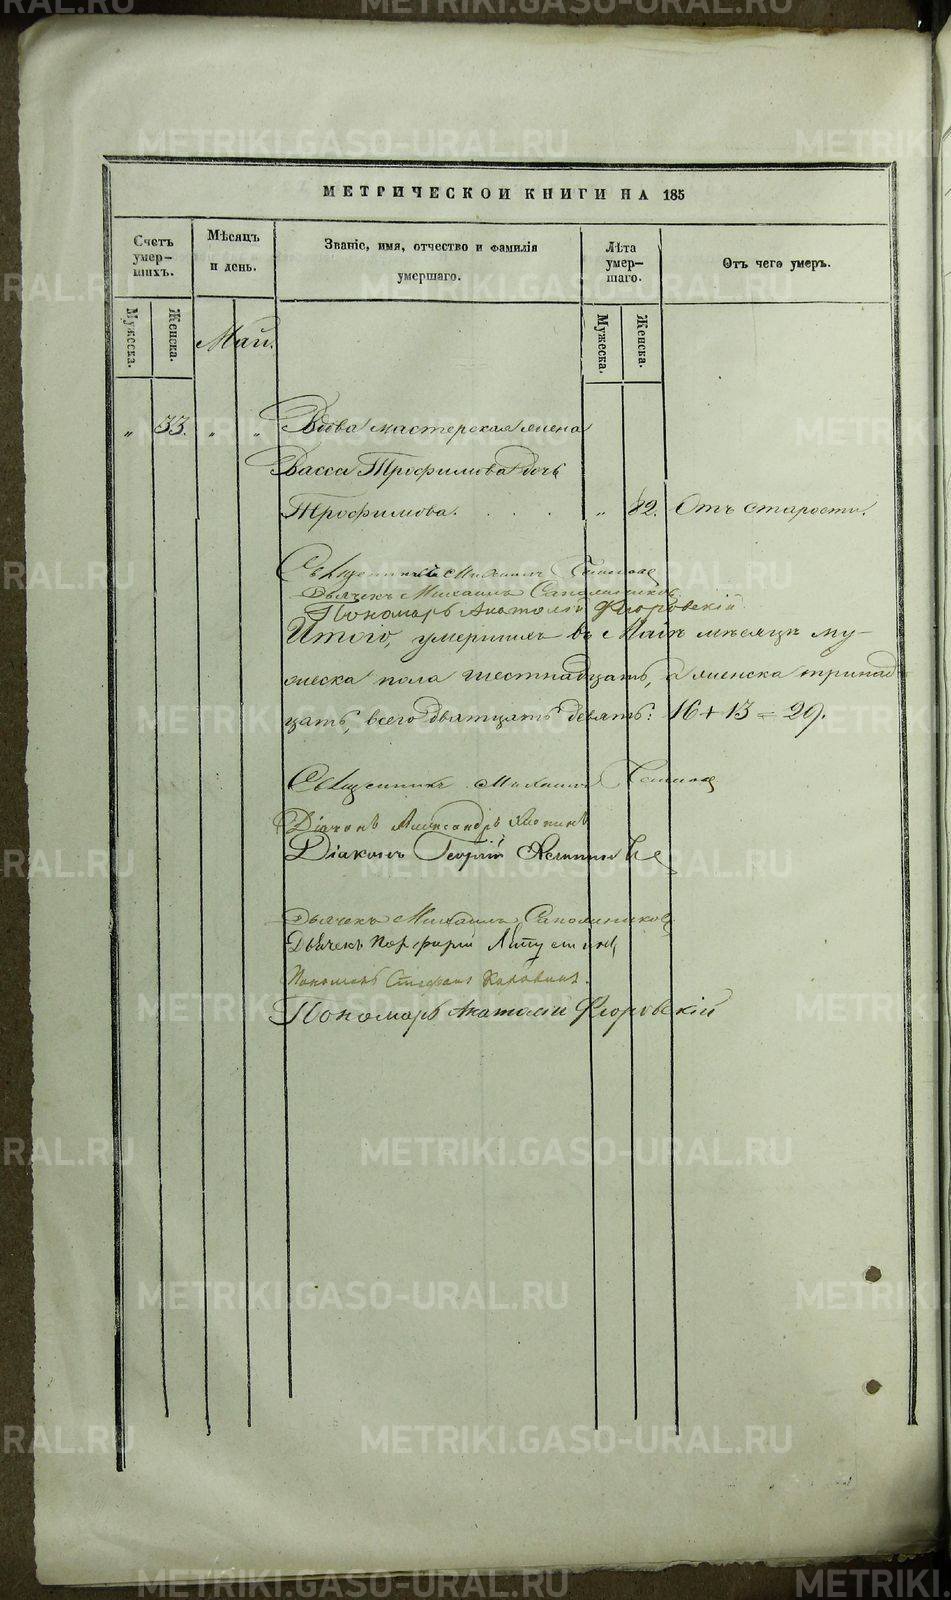 МЕТРИЧЕСКОЙ КНИГИ НА 185
Счетъ умер-шихъ.
Мѣсяцъ и день.
Званіе, имя, отчество и фамилія умершаго.
Лѣта умер-шаго.
Отъ чего умеръ.
Мужеска.
Женска.
Май.
Мужеска.
Женска.
„ 33. „ „ Вдова мастерская жена
Васса Трофимова дочь
Трофимова. . . . „ 82. Отъ старости.
Священникъ Михаилъ
Дьячекъ Михаилъ Сапожниковъ
Пономарь Анатолій Флоровскій
Итого, умершихъ въ Маѣ мѣсяцѣ му-
жеска пола шестнадцать, а женска тринад
цать, всего двятцать девять: 16 + 13 = 29.
Священникъ Михаилъ
Діаконъ Александръ
Діаконъ Георгій
Дьячекъ Михаилъ Сапожниковъ
Дьячекъ Порфирій
Пономарь Стефанъ Коровинъ.
Пономарь Анатолій Флоровскій
METRIKI.GASO-URAL.RU